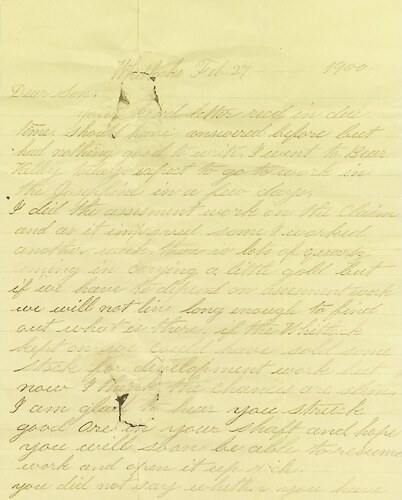 Feb 27 1900
Dear Son.
your kind letter recd in due
time. Should have answered before but
had nothing good to write. I went to Bear
Valley expect to go to work in
the in a few days.
I did the assesment work on the Claim
and as it improved some I worked
another week. there is lots of quartz
coming in carrying a little gold but
if we have to depend on assesment work
we will not live long enough to find
out what is there. if the
kept on we could have sold some
stock for development work but
now I think the chances are slim.
I am glad to hear you struck
good ore in your shaft and hope
you will soon be able to resume
work and open it up rich.
you did not say whether you have